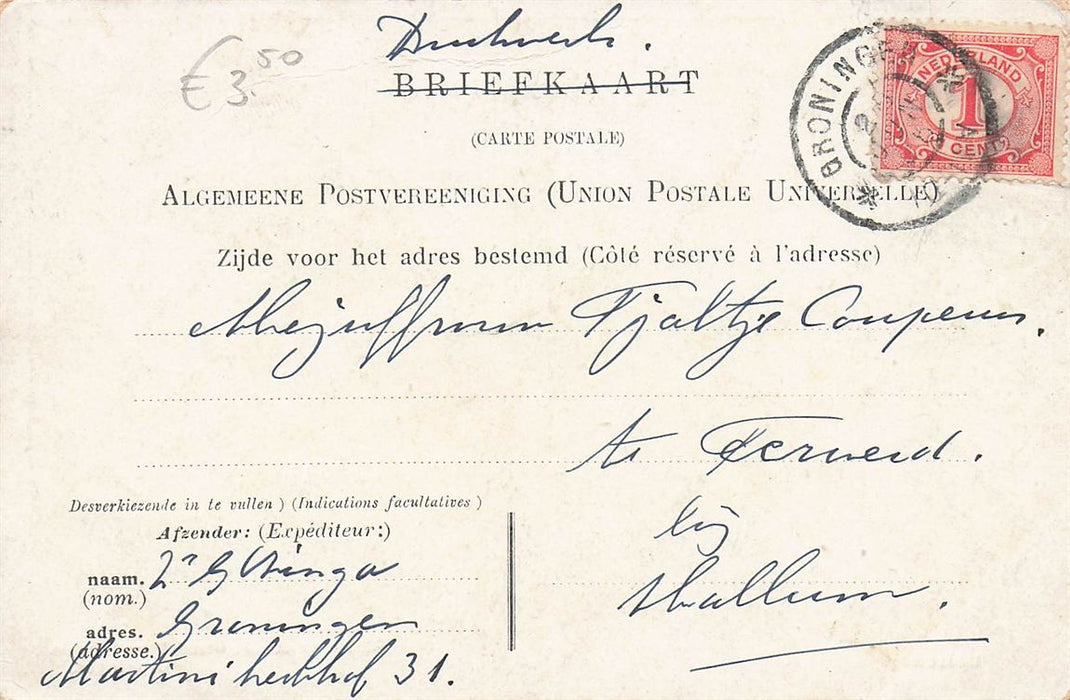 Drukwerk.
€ 3.50
BRIEFKAART
(CARTE POSTALE)
ALGEMEENE POSTVEREENIGING (UNION POSTALE UNIVERSELLE)
Zijde voor het adres bestemd (Côté réservé à l'adresse)
GRONINGEN
NEDERLAND
1
CENT
Mejuffrouw Tjaltje Couperus.
te Ferwerd.
bij
Hallum.
Desverkiezende in te vullen) (Indications facultatives)
Afzender: (Expéditeur:)
naam.
(nom.)
adres. Groningen
(adresse.)
Martinikerkhof 31.